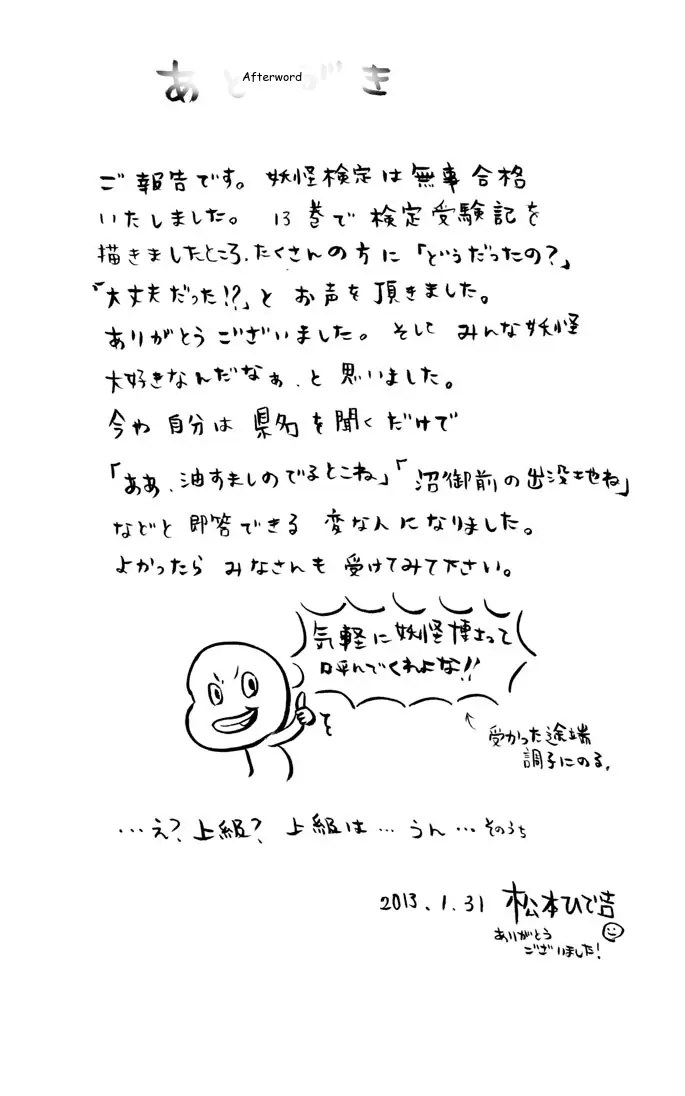 あとがき
Afterword
ご報告です。妖怪検定は無事合格
いたしました。13巻で検定受験記を
描きましたところ、たくさんの方に「どうだったの?」
「大丈夫だった!?」と お声を頂きました。
ありがとうございました。そして みんな妖怪
大好きなんだなぁ、と思いました。
今や自分は県名を聞くだけで
「ああ、油すましのでるとこね」「沼御前の出没地ね」
などと即答できる変な人になりました。
よかったら みなさんも 受けてみて下さい。
気軽に妖怪博士って
呼んでくれよな!!
受かった途端
調子にのる。
…え?上級? 上級は… うん… そのうち
2013.1.31 松本ひで吉
ありがとう
ございました!